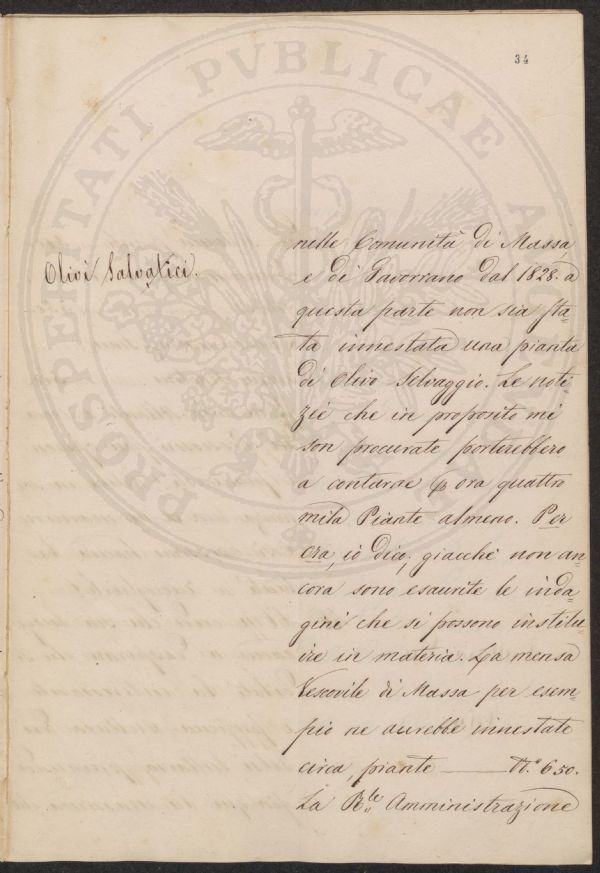 34
PROSPERITATI PVBLICAE A
Olivi Salvatici.
nelle Comunità di Massa
e di Gavorrano dal 1828. a
questa parte non sia sta=
ta innestata una pianta
di Olivo Selvaggio. Le noti
zie che in proposito mi
son procurate porterebbero
a contarne ora quattro
mila Piante almeno. Per
ora, io dico; giacchè non an=
cora sono esaurite le inda=
gini che si possono institui=
re in materia. La mensa
Vescovile di Massa per esem=
pio ne avrebbe innestate
circa, piante ——— N.° 650.
La R.le Amministrazione